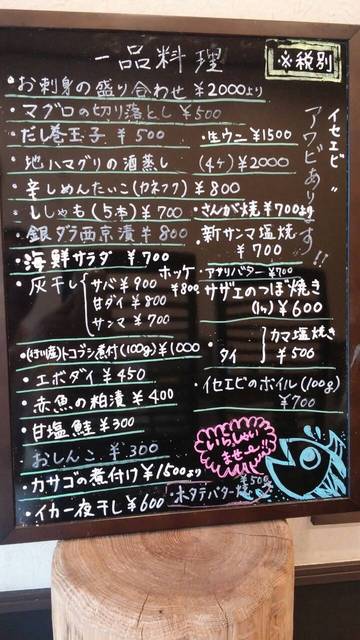 一品料理
※税別
・お刺身の盛り合わせ ¥2000より
・マグロの切り落とし ¥500
・だし巻玉子 ¥500
・生ウニ ¥1500
・地ハマグリの酒蒸し (4ケ) ¥2000
・辛しめんたいこ(カネフク) ¥800
・ししゃも(5本) ¥700
・さんが焼 ¥700より
・銀ダラ西京漬 ¥800
・新サンマ塩焼
¥700
・海鮮サラダ ¥700
・アサリバター ¥700
・灰干し
サバ ¥900
甘ダイ ¥800
サンマ ¥700
ホッケ
¥800
サザエのつぼ焼き
(1ケ) ¥600
・タイ
カマ塩焼き
¥500
トコブシ煮付(100g) ¥1000
・エボダイ ¥450
・イセエビのボイル(100g)
¥700
・赤魚の粕漬 ¥400
・甘塩鮭 ¥300
おしんこ ¥300
・カサゴの煮付け ¥1500より
・イカ一夜干し ¥600
・ホタテバター焼
¥500
イセエビ
アワビあります!!
いらっしゃい
ませ〜!!